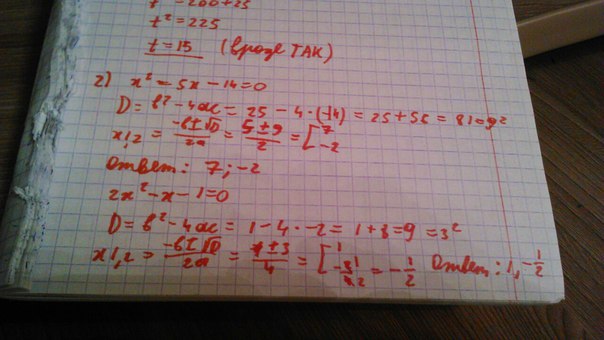 t² = 200+25
t² = 225
t = 15 (вроде ТАК)
2) x² - 5x - 14 = 0
D = b² - 4ac = 25 - 4·(-14) = 25 + 56 = 81 = 9²
x1,2 = (-b±√D)/2a = (5±9)/2 = [7 -2
Ответ: 7; -2
2x² - x - 1 = 0
D = b² - 4ac = 1 - 4·-2 = 1 + 8 = 9 = 3²
x1,2 = (-b±√D)/2a = (1±3)/4 = [1 -2/4 = -1/2 Ответ: 1, -1/2